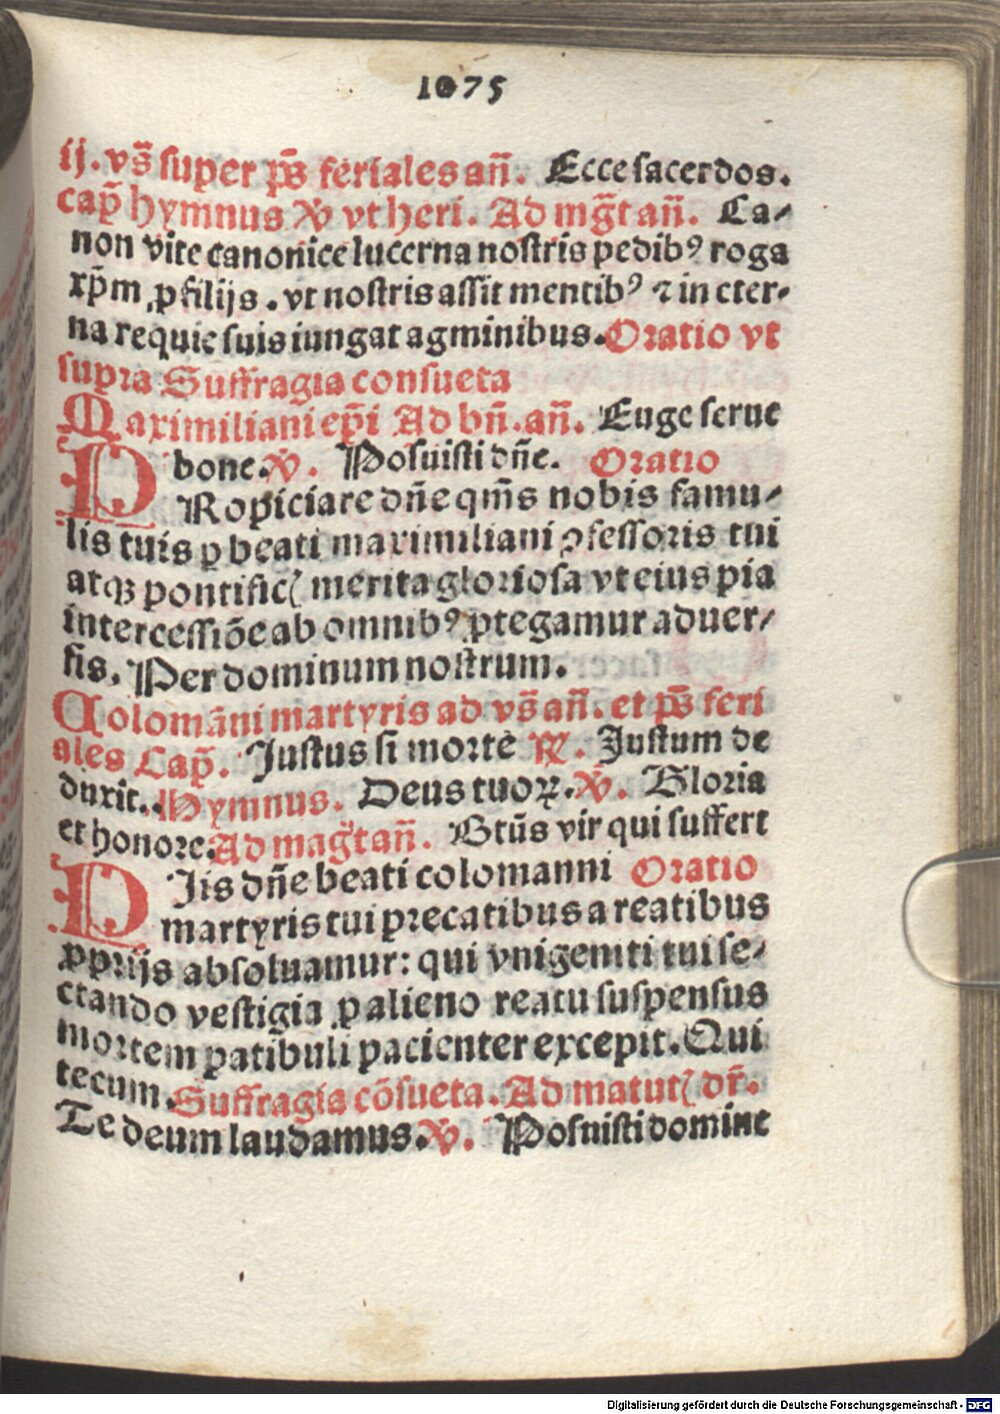 1075
ij. vs̄ super ps̄ feriales an̄. Ecce sacerdos.
cap̄ hymnus ℣ vt heri. Ad mḡt an̄. Ca⸗
non vite canonice lucerna nostris pedibꝰ roga
xp̄m ꝓ filijs. vt nostris assit mentibꝰ ⁊ in eter⸗
na requie suis iungat agminibus. Oratio vt
supra Suffragia consueta
Maximiliani ep̄i Ad bn̄. an̄. Euge serue
bone. ℣. Posuisti dn̄e. Oratio
PRopiciare dn̄e qm̄s nobis famu⸗
lis tuis ꝑ beati maximiliani ꝯfessoris tui
atqꝫ pontificꝭ merita gloriosa vt eius pia
intercessiōe ab omnibꝰ ꝓtegamur aduer⸗
sis. Per dominum nostrum.
Colomāni martyris ad vs̄ an̄. et ps̄ feri
ales Cap̄. Justus si morte ℟. Justum de
duxit. Hymnus. Deus tuoꝝ. ℣. Gloria
et honore. Ad maḡt an̄. Btūs vir qui suffert
DJis dn̄e beati colomanni Oratio
martyris tui precatibus a reatibus
ꝓprijs absoluamur: qui vnigeniti tui se⸗
ctando vestigia ꝓ alieno reatu suspensus
mortem patibuli pacienter excepit. Qui
tecum. Suffragia cōsueta. Ad matutꝭ dr̄.
Te deum laudamus. ℣. Posuisti domine
Digitalisierung gefördert durch die Deutsche Forschungsgemeinschaft - DFG